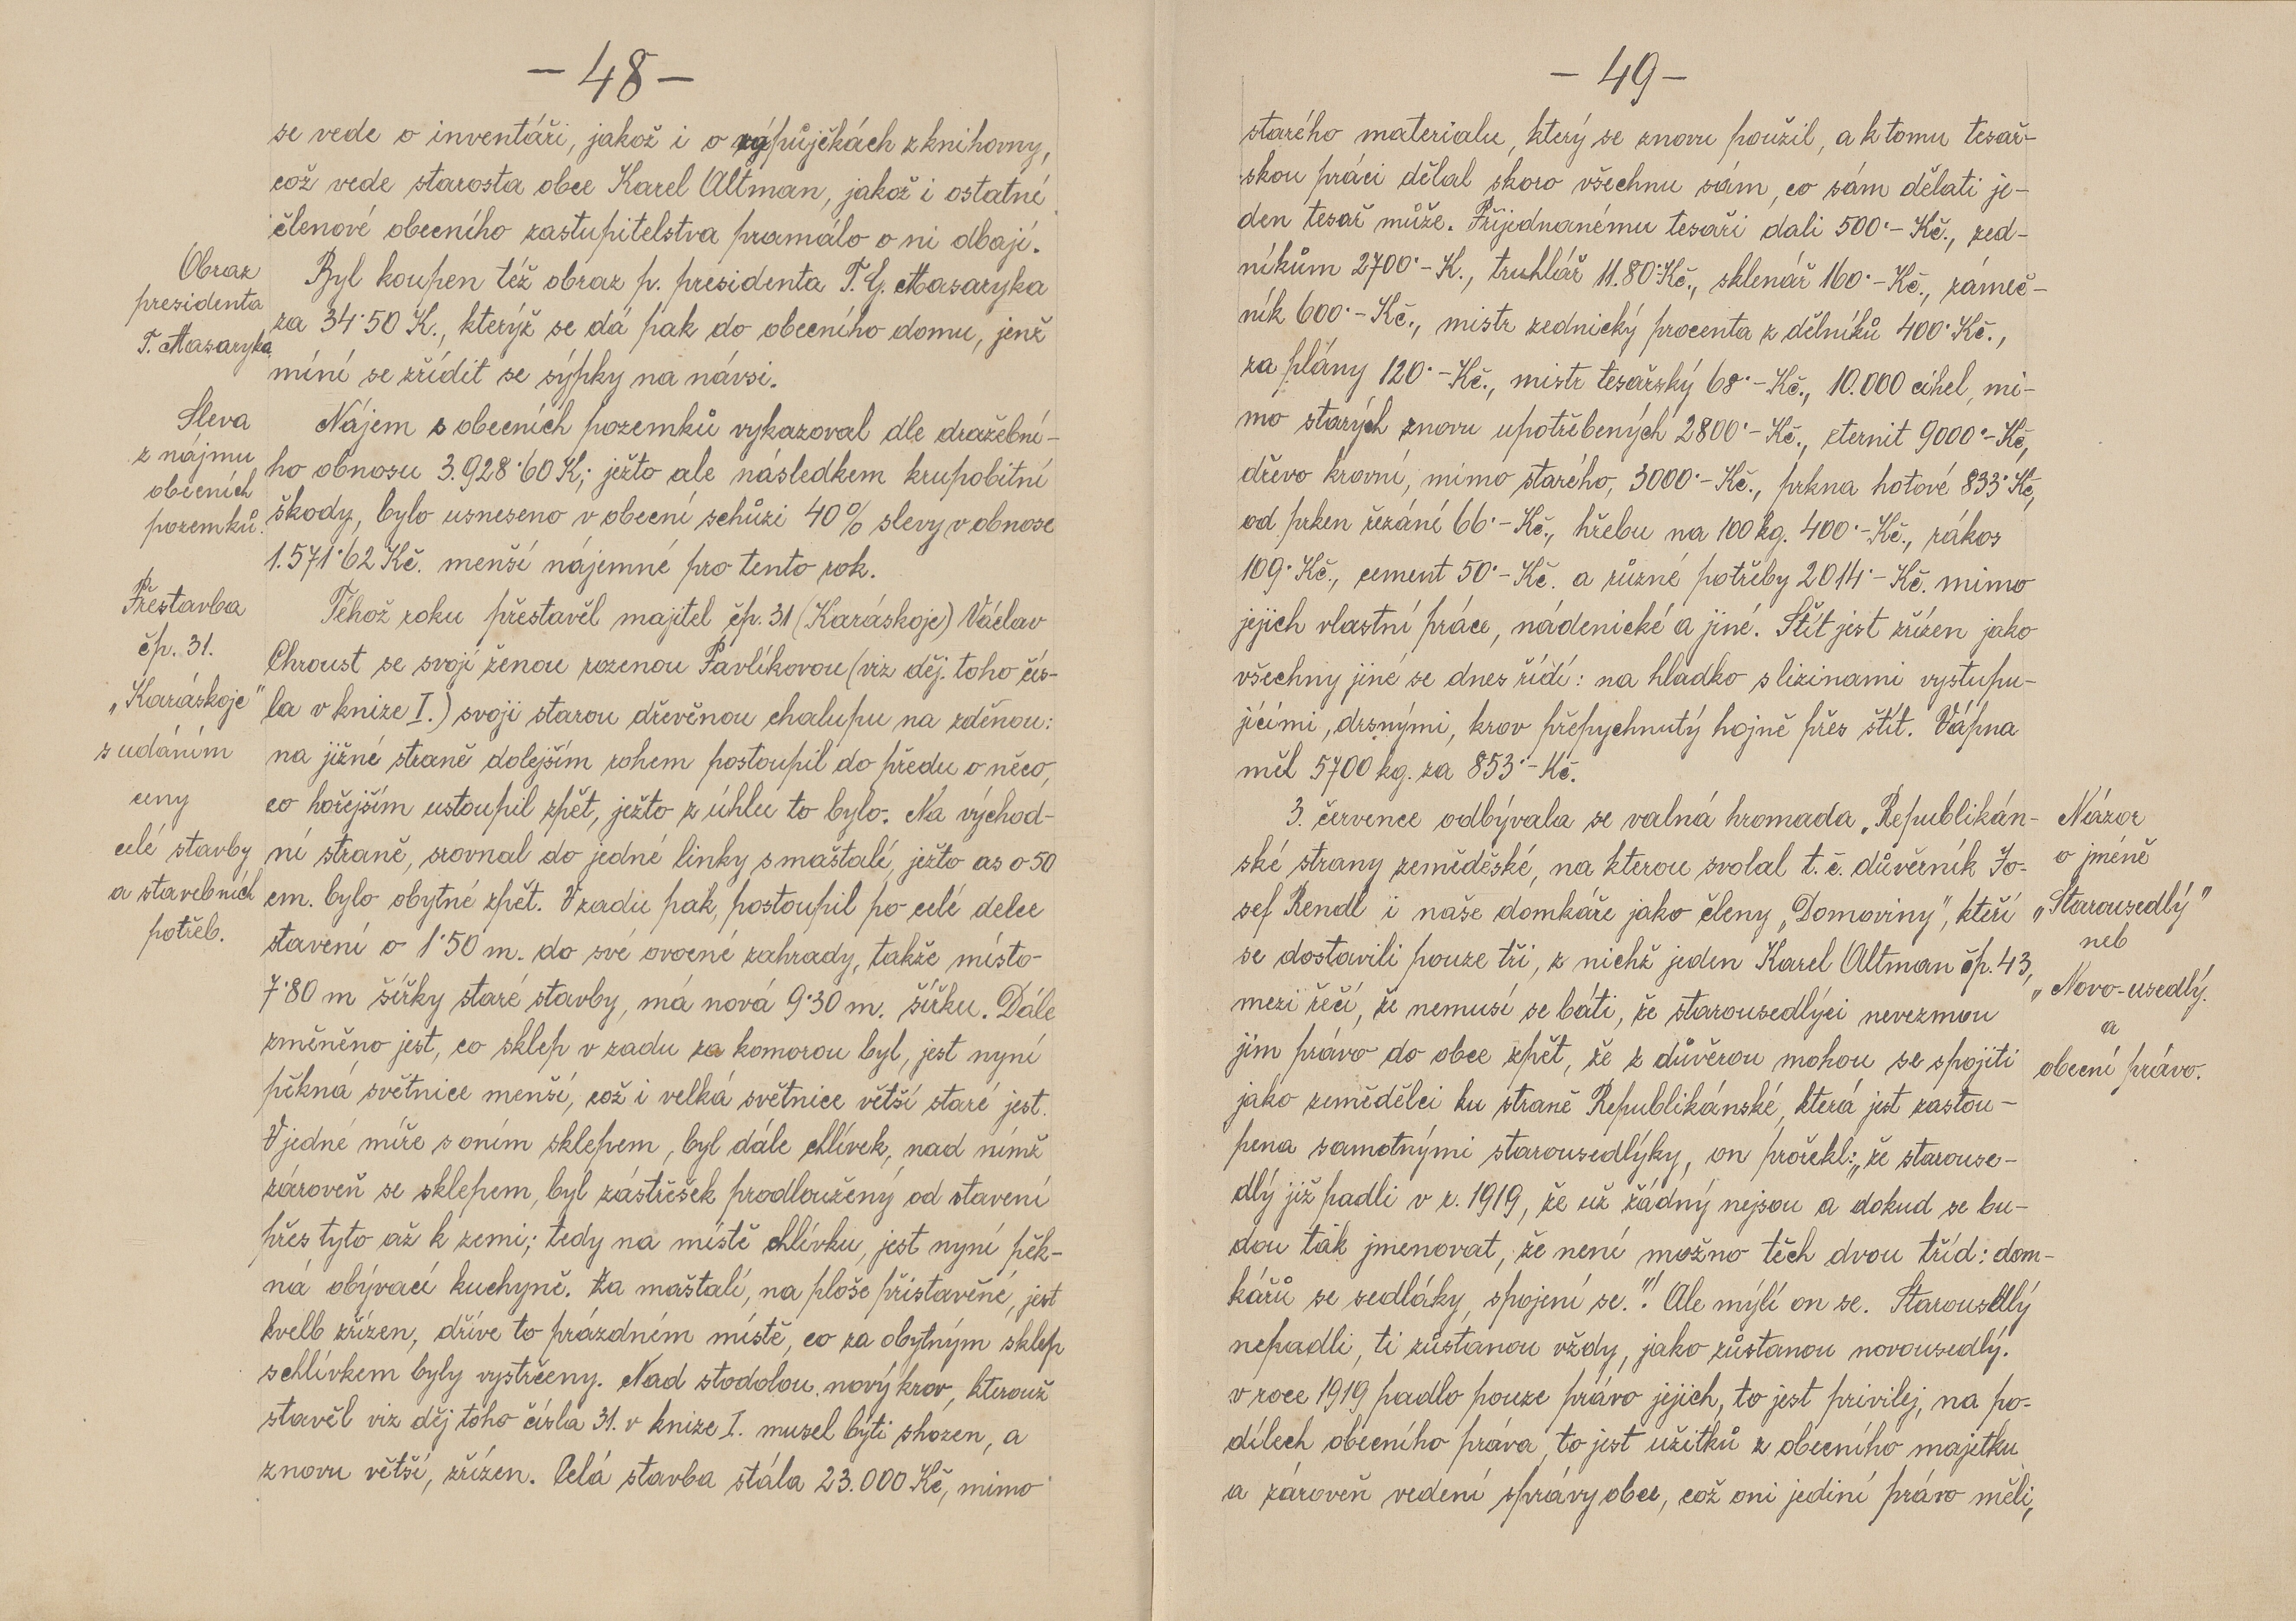 — 48 —
se vede o inventáři, jakož i o výpůjčkách z knihovny,
což vede starosta obce Karel Altman, jakož i ostatné
členové obecního zastupitelstva pramálo o ni dbají.
Obraz
presidenta
T. Masaryka
Byl koupen též obraz p. presidenta T. G. Masaryka
za 34·50 K., kterýž se dá pak do obecního domu, jenž
míní se zřídit se sýpky na návsi.
Sleva
z nájmu
obecních
pozemků.
Nájem s obecních pozemků vykazoval dle dražební-
ho obnosu 3.928·60 K; ježto ale následkem krupobitní
škody, bylo usneseno v obecní schůzi 40% slevy v obnose
1.571·62 Kč. menší nájemné pro tento rok.
Přestavba
čp. 31.
„Karáskoje"
s udáním
ceny
celé stavby
a stavebních
potřeb.
Téhož roku přestavěl majitel čp. 31 (Karáskoje) Václav
Chroust se svojí ženou rozenou Pavlíkovou (viz děj. toho čís-
la v knize I.) svoji starou dřevěnou chalupu na zděnou:
na jižné straně dolejším rohem postoupil do předu o něco,
co hořejším ustoupil zpět, ježto z úhlu to bylo. Na východ-
ní straně, srovnal do jedné linky s maštalí, ježto as o 50
cm. bylo obytné zpět. V zadu pak, postoupil po celé delce
stavení o 1·50 m. do své ovocné zahrady, takže místo
7·80 m šířky staré stavby, má nová 9·30 m. šířku. Dále
změněno jest, co sklep v zadu za komorou byl, jest nyní
pěkná světnice menší, což i velká světnice větší staré jest.
V jedné míře s oním sklepem, byl dále chlívek, nad nímž
zároveň se sklepem, byl zástřešek prodloužený od stavení
přes tyto až k zemi; tedy na místě chlívku, jest nyní pěk-
ná obývací kuchyně. Za maštalí, na ploše přistavěné, jest
kvelb zřízen, dříve to prázdném místě, co za obytným sklep
s chlívkem byly vystrčeny. Nad stodolou nový krov, kterouž
stavěl viz děj toho čísla 31. v knize I. musel býti shozen, a
znovu větší, zřízen. Celá stavba stála 23.000 Kč, mimo
— 49 —
starého materialu, který se znovu použil, a k tomu tesař-
skou práci dělal skoro všechnu sám, co sám dělati je-
den tesař může. Přijednanému tesaři dali 500·- Kč., zed-
níkům 2700·- K., truhlář 11.80·Kč., sklenář 160·- Kč., zámeč-
ník 600·- Kč., mistr zednický procenta z dělníků 400·Kč.,
za plány 120·- Kč., mistr tesařský 68·- Kč., 10.000 cihel, mi-
mo starých znovu upotřebených 2800·- Kč., eternit 9000·- Kč,
dřevo krovní, mimo starého, 3000·- Kč., prkna hotové 833·Kč,
od prken řezání 66·- Kč., hřebu na 100 kg. 400·- Kč., rákos
109·Kč., cement 50·- Kč. a různé potřeby 2014·- Kč. mimo
jejich vlastní práce, nádenické a jiné. Štít jest zřízen jako
všechny jiné se dnes řídí: na hladko s lizinami vystupu-
jícími, drsnými, krov přepychnutý hojně přes štít. Vápna
měl 5700 kg. za 853·- Kč.
3. července odbývala se valná hromada „Republikán-
ské strany zeměděské, na kterou svolal t. č. důvěrník Jo-
sef Rendl i naše domkáře jako členy „Domoviny", kteří
se dostavili pouze tři, z nichž jeden Karel Altman čp. 43,
mezi řečí, že nemusí se báti, že starousedlýci nevezmou
jim právo do obce zpět, že z důvěrou mohou se spojiti
jako zemědělci ku straně Republikánské, která jest zastou-
pena samotnými starousedlýky, on prořekl: „že starouse-
dlý již padli v r. 1919, že už žádný nejsou a dokud se bu-
dou ták jmenovat, že není možno těch dvou tříd: dom-
kářů se sedláky, spojení se."! Ale mýlí on se. Starousedlý
nepadli, ti zůstanou vždy, jako zůstanou novousedlý.
v roce 1919 padlo pouze právo jejich, to jest privilej, na po-
dílech obecního práva, to jest užitků z obecního majetku
a zároveň vedení správy obce, což oni jediní právo měli,
Názor
o jméně
„Starousedlý"
neb
„Novo-usedlý.
a
obecní právo.